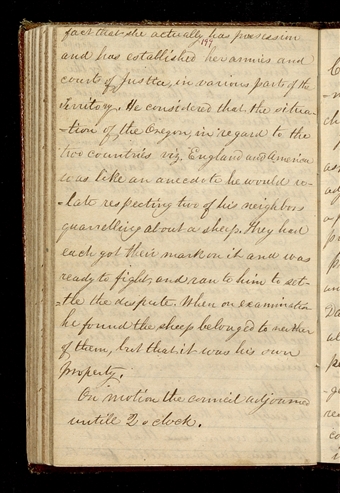 fact that she actually has possession
197
and has established her armies and
courts of Justice, in various parts of the
Territory. He considered that the situa-
-tion of the Oregon, in regard to the
two countries viz. England and America
was like an anecdote he would re-
-late respecting two of his neighbors
quarrelling about a sheep. They had
each got their mark on it and was
ready to fight, and ran to him to set-
-tle the despute. When on examination
he found the sheep belonged to neither
of them, but that it was his own
property.
On motion the council adjourned
untill 2 o clock.